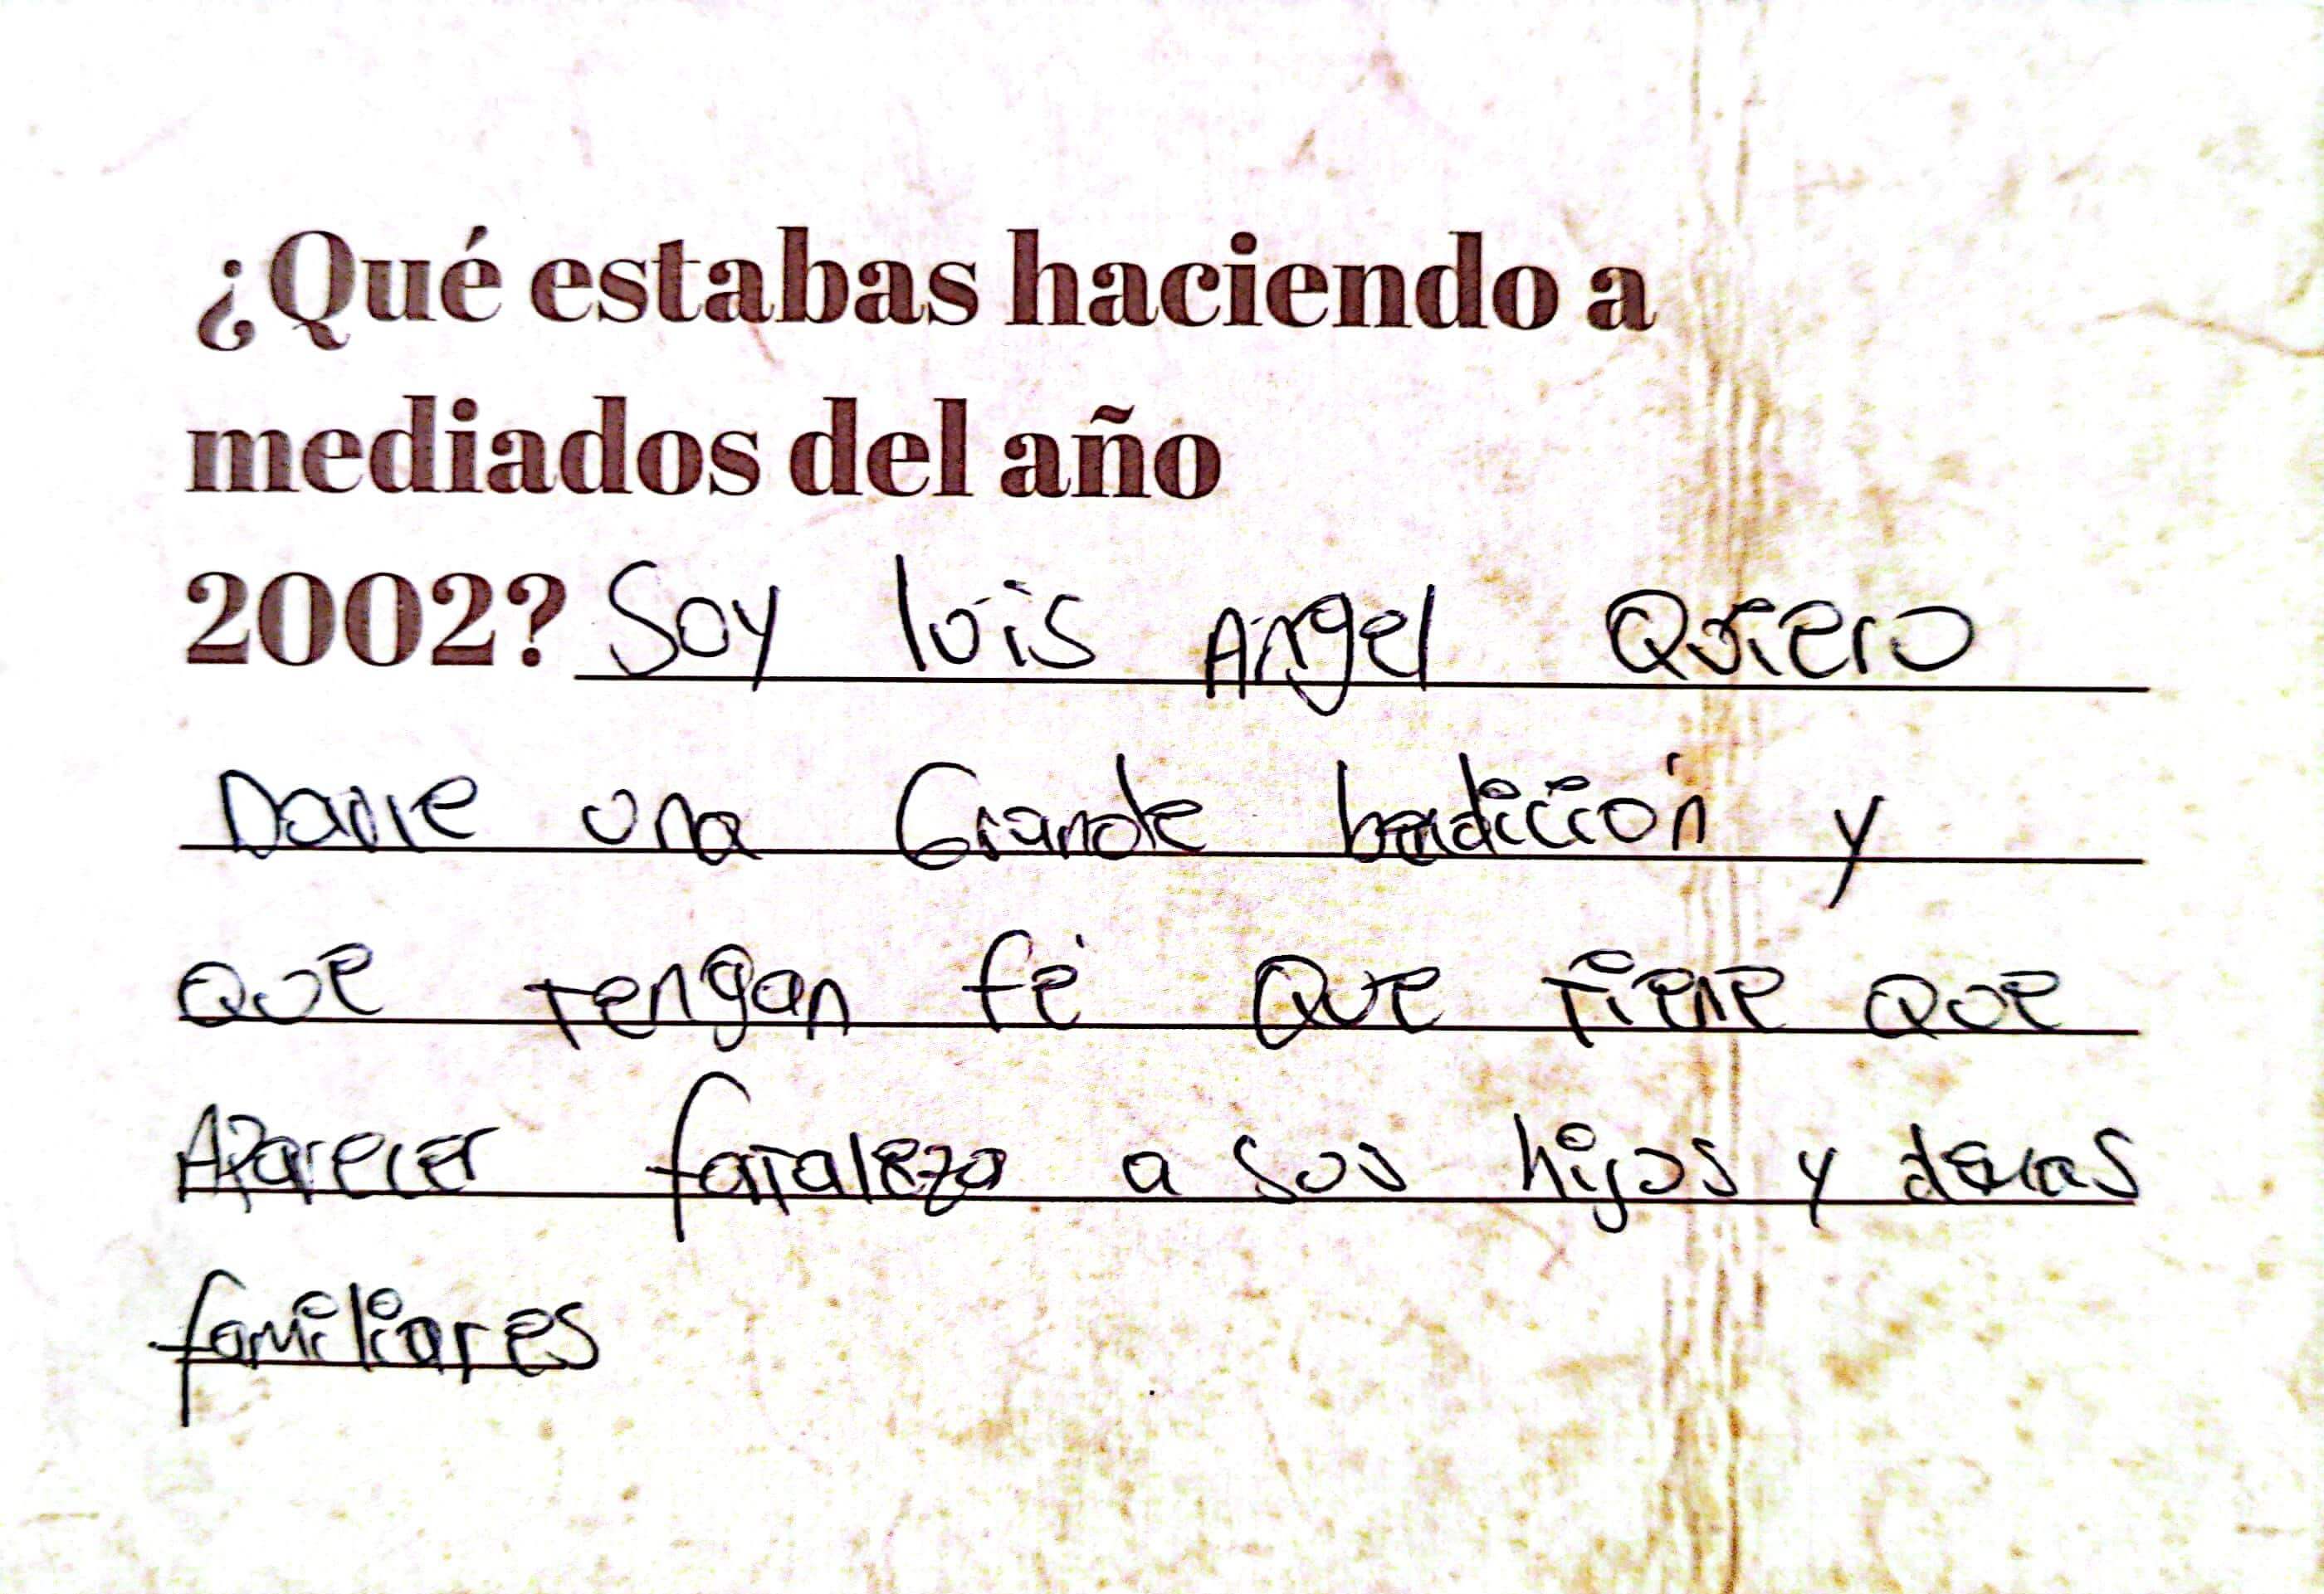 ¿Qué estabas haciendo a
mediados del año
2002? Soy luis Angel Quiero
Darle una Grande bendición y
que tengan fé Que tiene que
Aparecer fortaleza a sus hijos y demas
familiares